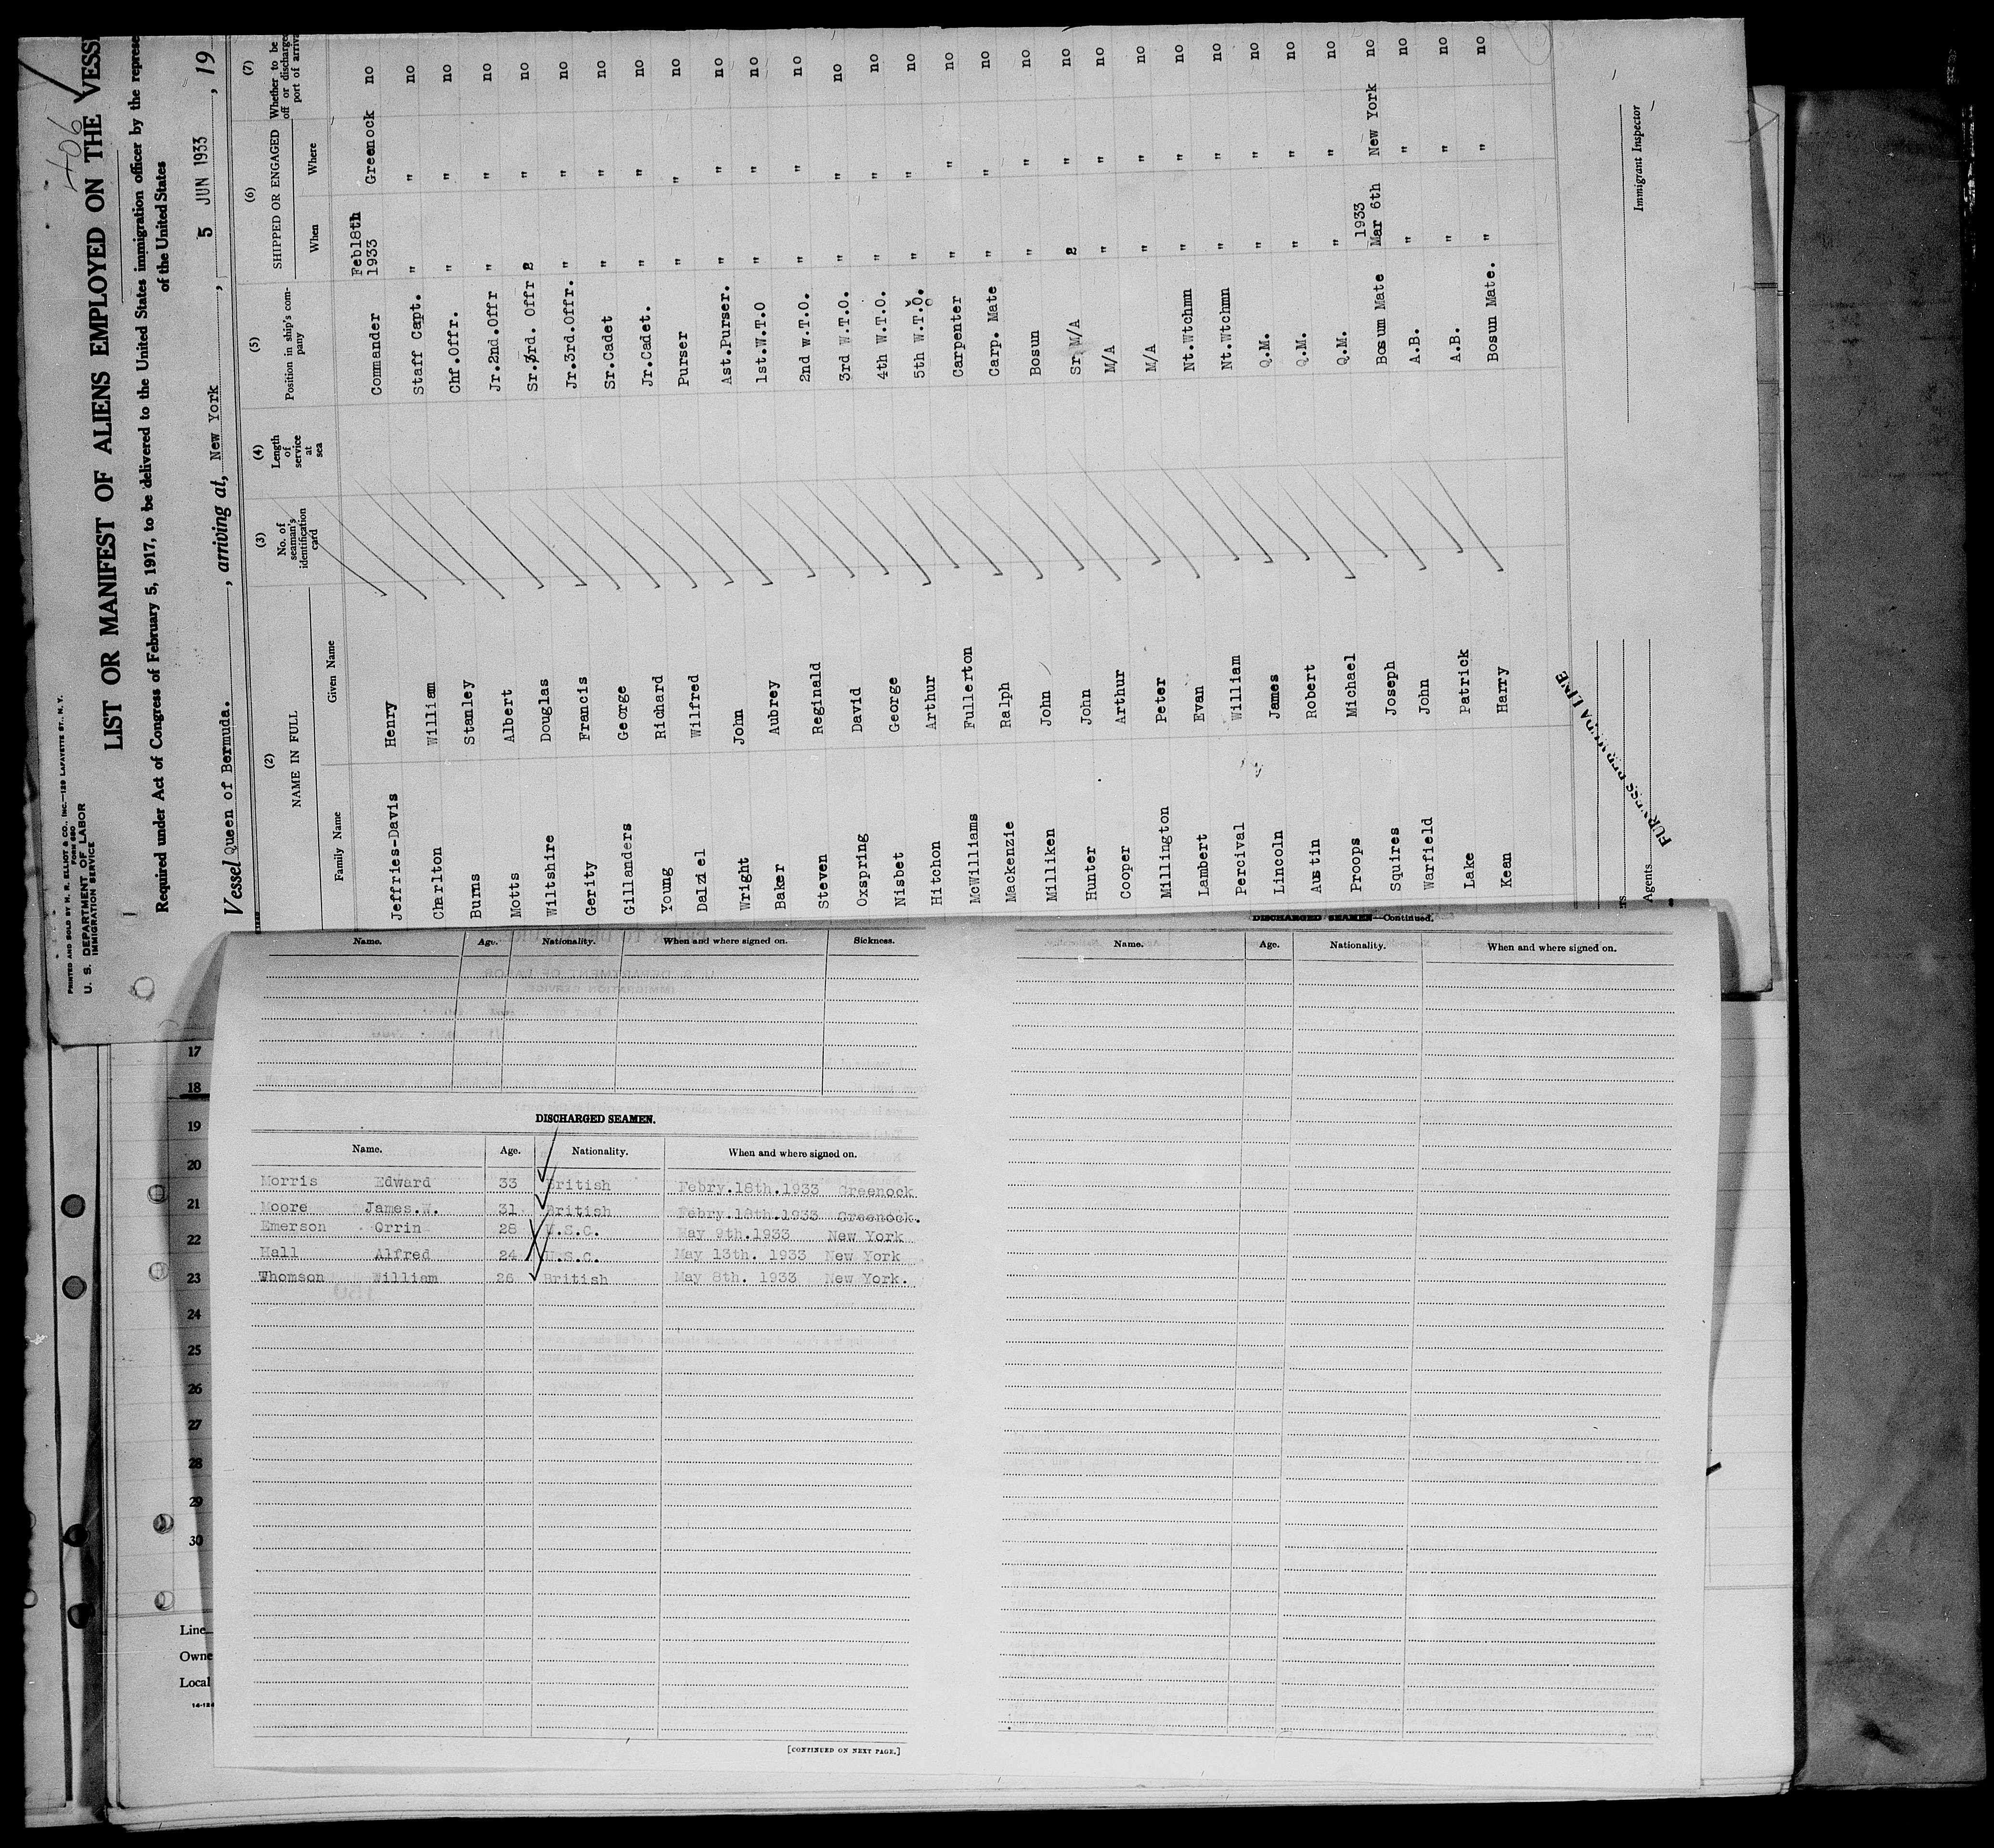 406
PRINTED AND SOLD BY M. R. ELLIOT & CO., INC.—129 LAFAYETTE ST., N. Y.
FORM 680
U. S. DEPARTMENT OF LABOR
IMMIGRATION SERVICE
LIST OR MANIFEST OF ALIENS EMPLOYED ON THE VESS
Required under Act of Congress of February 5, 1917, to be delivered to the United States immigration officer by the represe
of the United States
Vessel Queen of Bermuda. , arriving at, New York , 5 JUN 1933 , 19
(2) (3) (4) (5) (6) (7)
NAME IN FULL No. of seaman's identification card Length of service at sea Position in ship's company SHIPPED OR ENGAGED Whether to be off or discharged port of arriva
Family Name Given Name When Where
Jeffries-Davis Henry Commander Feb18th 1933 Greenock no
Charlton William Staff Capt. " " no
Burns Stanley Chf.Offr. " " no
Motts Albert Jr.2nd.Offr " " no
Wiltshire Douglas Sr.3rd. Offr " no
Gerity Francis Jr.3rd.Offr. " " no
Gillanders George Sr.Cadet " " no
Young Richard Jr.Cadet. " " no
Dalziel Wilfred Purser " " no
Wright John Ast.Purser. " " no
Baker Aubrey 1st.W.T.O " " no
Steven Reginald 2nd W.T.O. " " no
Oxspring David 3rd W.T.O. " " no
Nisbet George 4th W.T.O. " " no
Hitchon Arthur 5th W.T.O. " " no
McWilliams Fullerton Carpenter " " no
Mackenzie Ralph Carp. Mate " " no
Milliken John Bosun " " no
Hunter John Sr M/A " no
Cooper Arthur M/A " " no
Millington Peter M/A " " no
Lambert Evan Nt.Wtchmn " " no
Percival William Nt.Wtchmn " " no
Lincoln James Q.M. " " no
Austin Robert Q.M. " " no
Proops Michael Q.M. " " no
Squires Joseph Bosum Mate 1933 Mar 6th New York no
Warfield John A.B. " " no
Lake Patrick A.B. " " no
Kean Harry Bosun Mate. " " no
FURNESS BERMUDA LINE
Agents
Immigrant Inspector
Name. Age. Nationality. When and where signed on. Sickness.
DISCHARGED SEAMEN.
Name. Age. Nationality. When and where signed on.
Morris Edward 33 British Febry.18th.1933 Greenock
Moore James.W. 31 British Febry.18th.1933 Greenock.
Emerson Orrin 28 U.S.C. May 9th.1933 New York
Hall Alfred 24 U.S.C. May 13th. 1933 New York
Thomson William 26 British May 8th. 1933 New York.
[CONTINUED ON NEXT PAGE.]
DISCHARGED SEAMEN—Continued.
Name. Age. Nationality. When and where signed on.
17
18
19
20
21
22
23
24
25
26
27
28
29
30
Line
Owne
Local